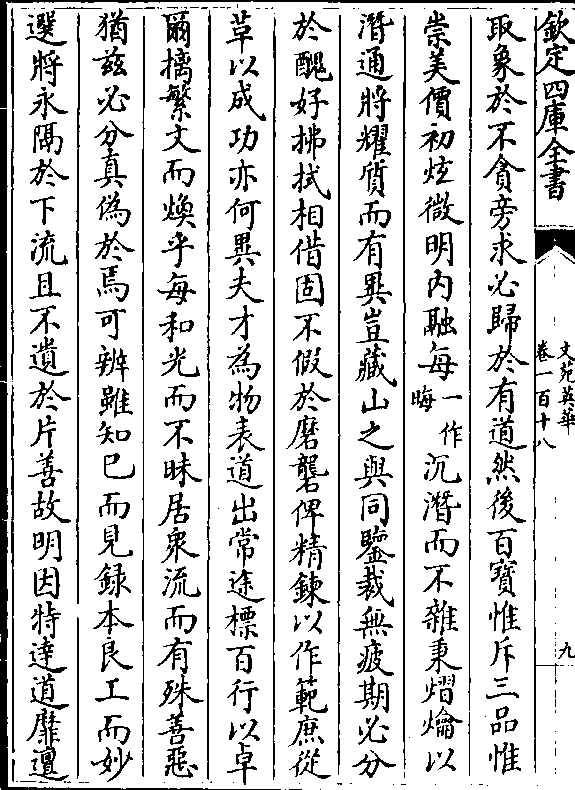 欽定四庫全書
文苑英華
卷一百十八
九
取象於不貪旁求必歸於有道然後百寶惟斥三品惟
崇美價初炫微明内融每一作晦沉潛而不雜秉熠爚以
潛通將耀質而有異豈藏山之與同鑒裁無疲期必分
於醜好拂拭相借固不假於磨礱俾精鍊以作範庶從
革以成功亦何異夫才為物表道出常途標百行以卓
爾摛繁文而煥乎每和光而不昧居衆流而有殊善惡
猶兹必分真偽於焉可辨雖知已而見録本良工而妙
選將永隔於下流且不遺於片善故明因特達道靡邅